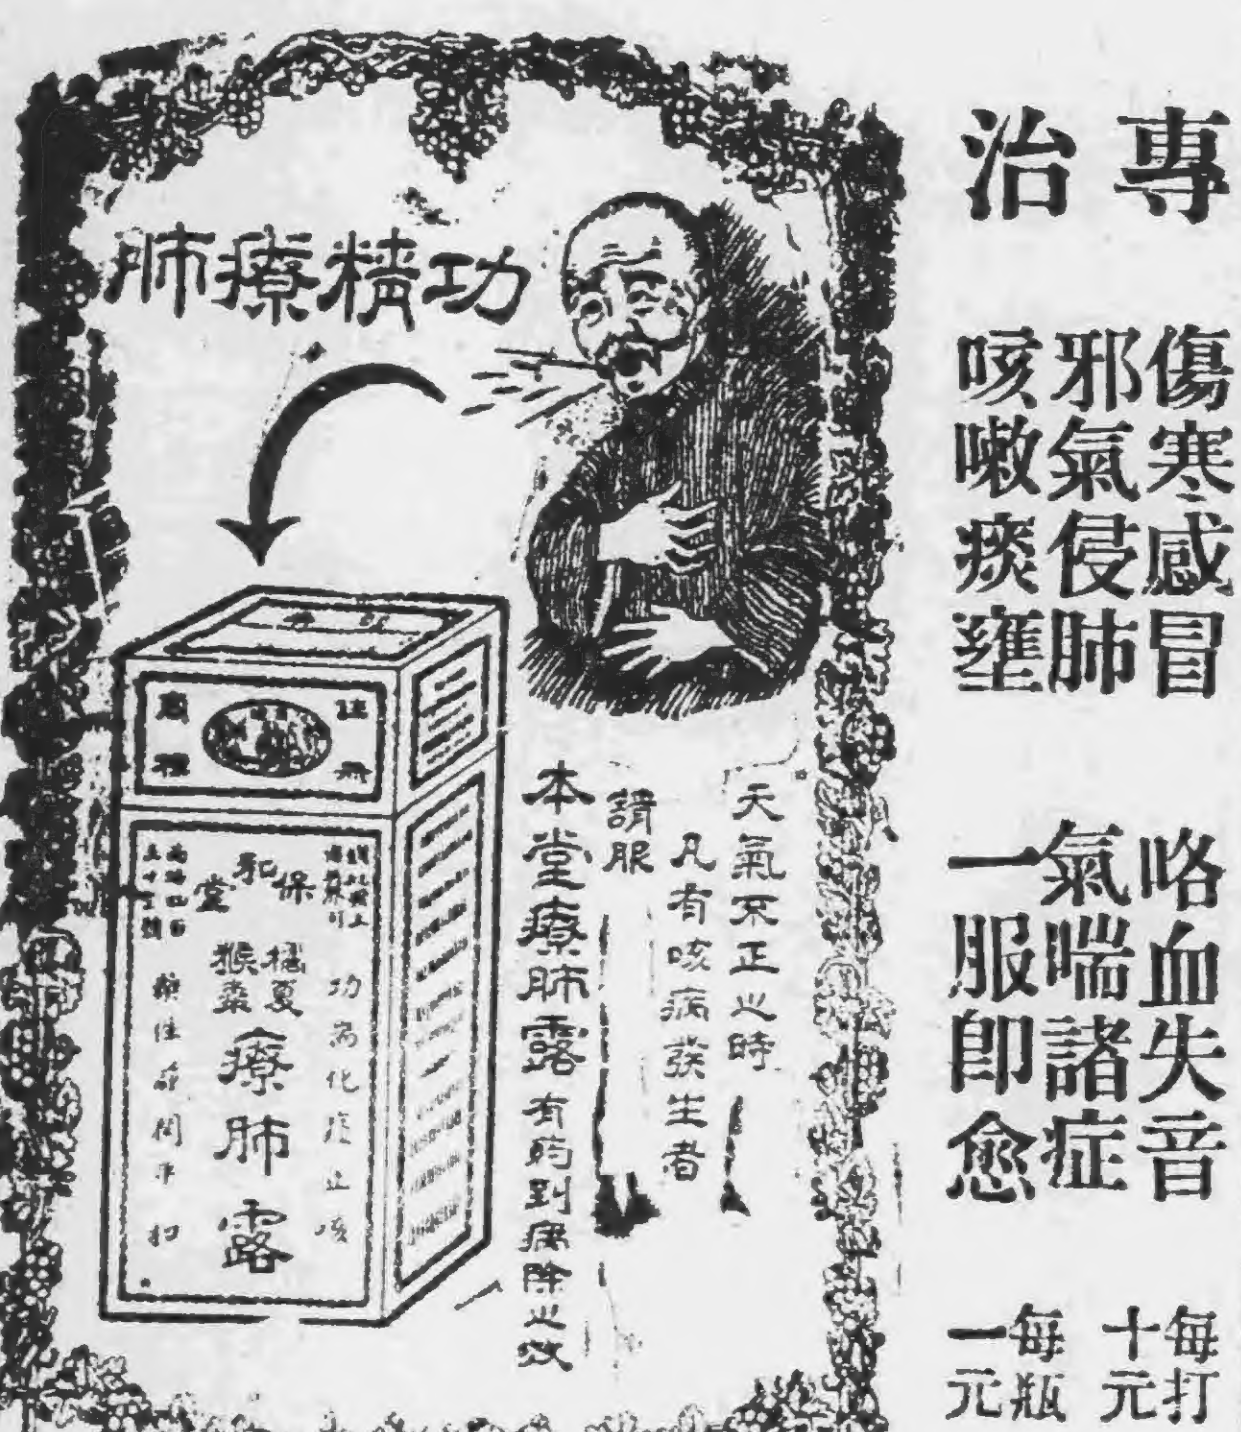 專治
傷寒感冒
邪氣侵肺
咳嗽痰壅
咯血失音
氣喘諸症
一服即愈
每打十元
每瓶一元
功精療肺
天氣不正之時
凡有咳病發生者
請服
本堂療肺露有药到病除之效
保和堂
猴棗
夏
療肺露
功能化痰止咳
藥性
平和